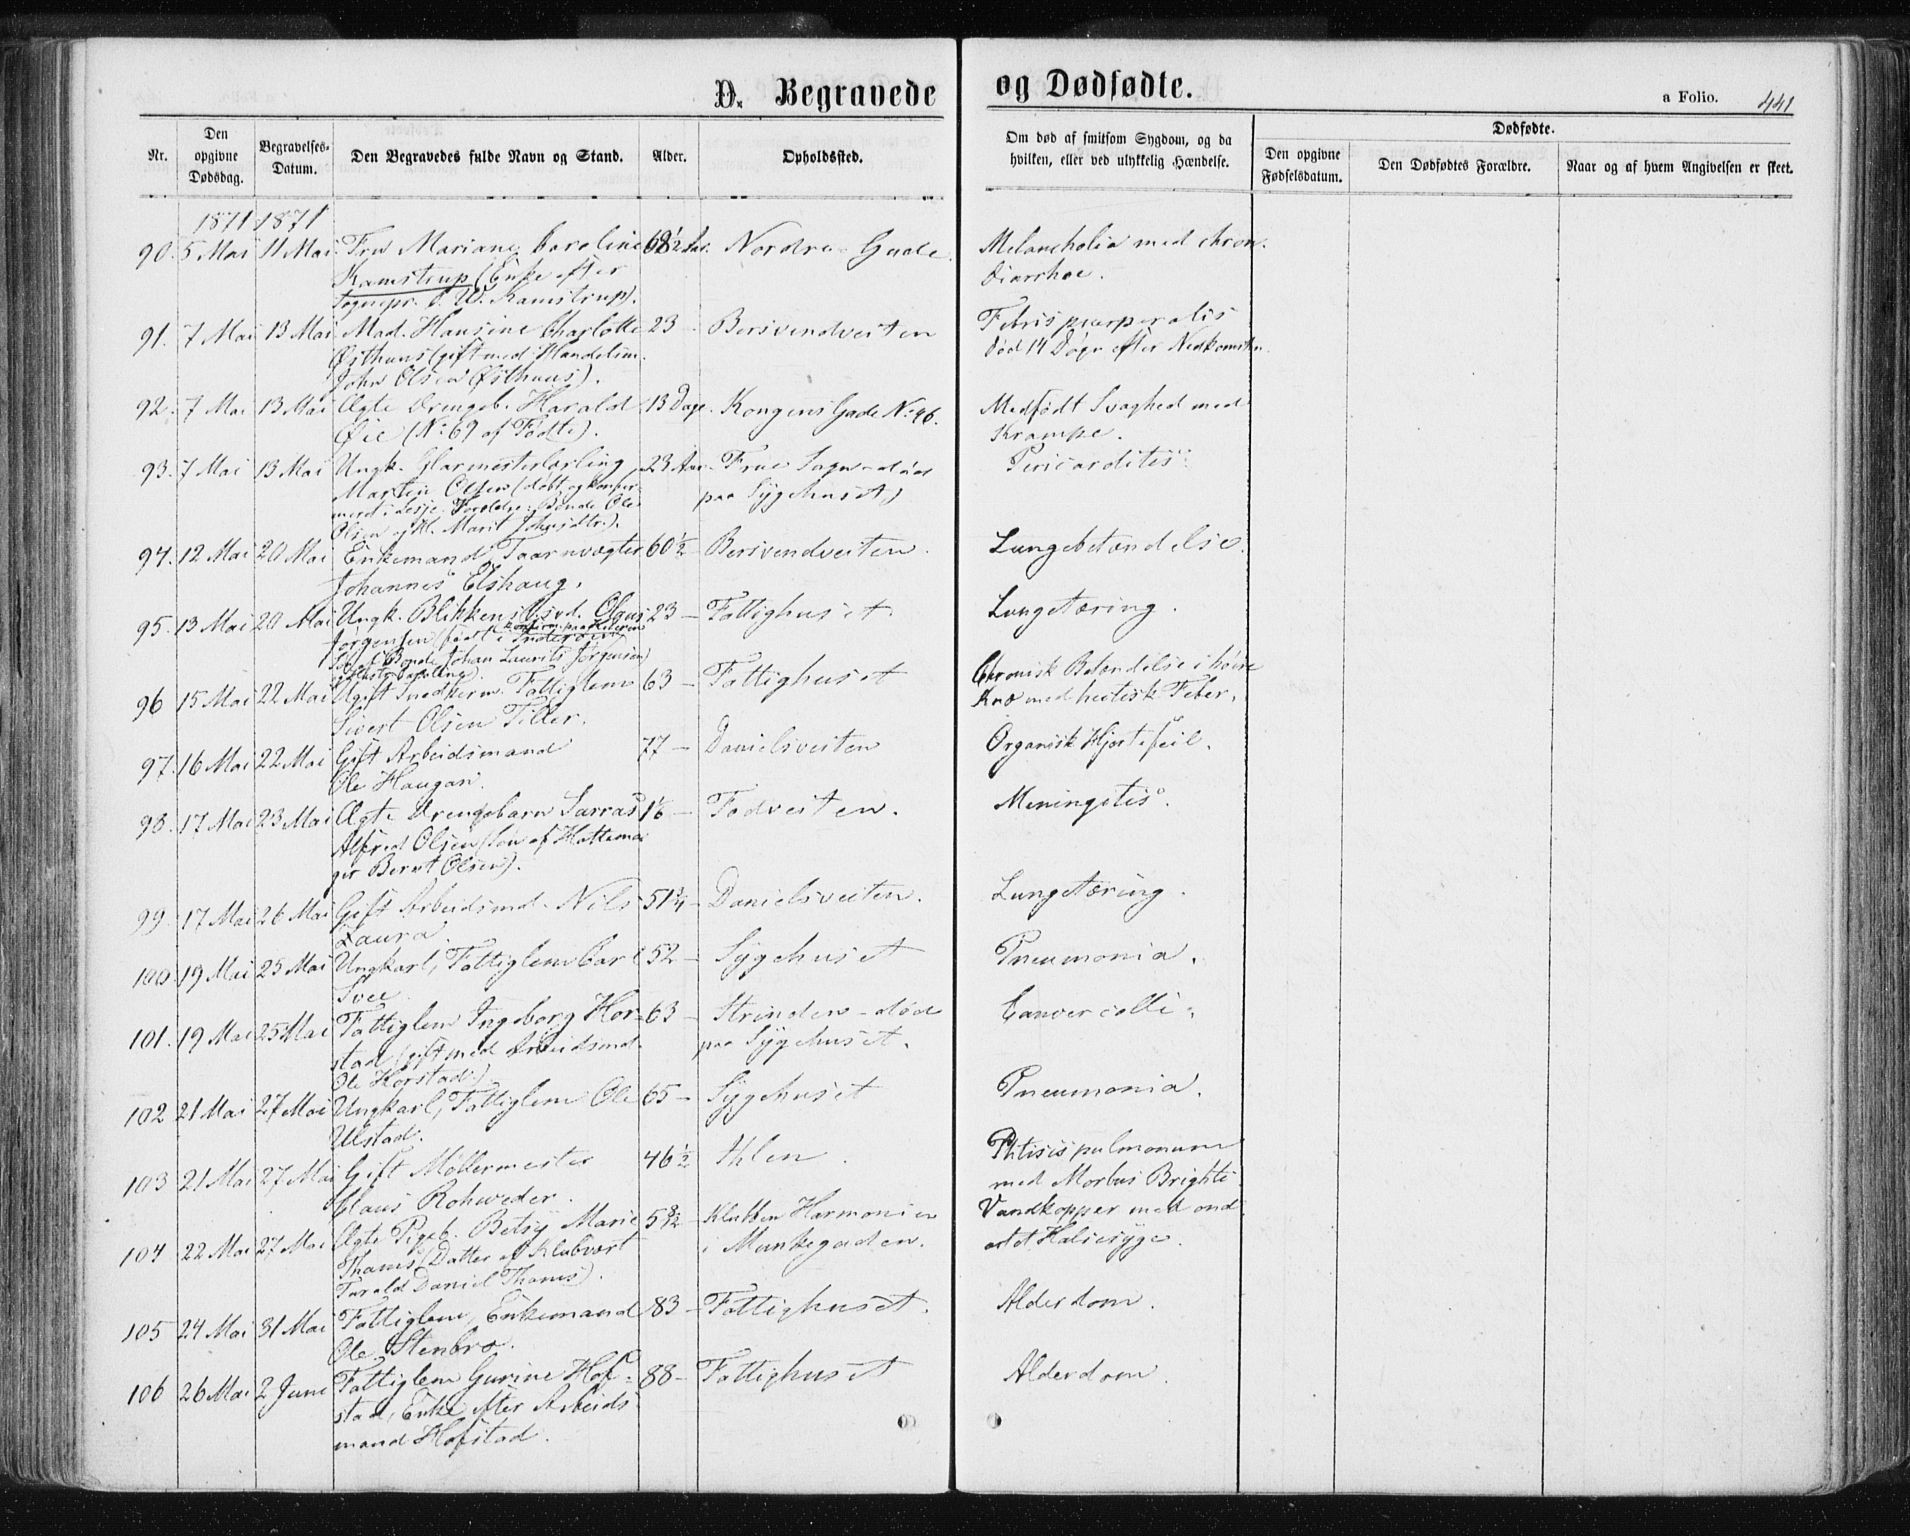 D. Begravede og Dødfødte.
a Folio. 441
Nr. Den opgivne Dødsdag. Begravelses-Datum. Den Begravedes fulde Navn og Stand. Alder. Opholdssted. Om død af smitsom Sygdom, og da hvilken, eller ved ulykkelig Hændelse.
Dødfødte.
Den opgivne Fødselsdatum. Den Dødfødtes Forældre. Naar og af hvem Angivelsen er skeet.
1871 1871
90. 5 Mai 11 Mai Fru Mariane Caroline 68½ Aar. Nordre Gade. Melancholia med chron.
Kamstrup (Enke efter Diarrhoe.
Sognepr. O. W. Kamstrup).
91. 7 Mai 13 Mai Mad. Hansine Charlotte 23 - Bersvendveiten Febris puerperalis
Østhuus (gift med Handelsm. død 14 Døgn efter Nedkomsten.
John Olsen Østhuus).
92. 7 Mai 13 Mai Ægte Drengeb. Harald 13 Dage. Kongens Gade No. 96. Medfødt Svaghed med
Øie (No. 69 af Fødte). Krampe.
93. 7 Mai 13 Mai Ungk. Glarmesterlærling 23 Aar - Frue Sogn - død Pericarditis.
Martin Olsen (døbt og konfir- paa Sygehuset)
meret i Lesje. Forældre: Bonde Ole
Olsen og H. Marit Johnsdtr.).
94. 12 Mai 20 Mai Enkemand Taarnvægter 60½ - Bersvendveiten. Lungebetændelse.
Johannes Elshaug.
95. 13 Mai 20 Mai Ungk. Blikkensl.svd. Olaus 23 - Fattighuset Lungetæring.
Jørgensen (født i Inderøen
Søn af Bonde Johan Laurits Jørgensen)
96 15 Mai 22 Mai Ugift Snedkerm. Fattiglem 63 - Fattighuset Chronisk Betændelse i høire
Sivert Olsen Tiller. Knæ med hectisk Feber.
97. 16 Mai 22 Mai Gift Arbeidsmand 77 - Danielsveiten Organisk Hjertefeil.
Ole Haugan.
98. 17 Mai 23 Mai Ægte Drengebarn Sarras 1⅙ - Fodveiten. Meningitis.
Alfred Olsen (Søn af Hattema-
ger Bernt Olsen).
99. 17 Mai 26 Mai Gift Arbeidsmd. Nils 51¾ - Danielsveiten. Lungetæring.
Laura
100. 19 Mai 25 Mai Ungkarl, Fattiglem Carl 52 - Sygehuset Pneumonia.
Svee.
101. 19 Mai 25 Mai Fattiglem Ingeborg Hor- 63 - Strinden - død Cancer colli.
stad (gift med Arbeidsmd. paa Sygehuset.
Ole Horstad)
102 21 Mai 27 Mai Ungkarl, Fattiglem Ole 65 - Sygehuset Pneumonia.
Ulstad.
103 21 Mai 27 Mai Gift Møllermester 46½ Ihlen. Phtisis pulmonum
Claus Rohweder. med Morbus Brighti
104 22 Mai 27 Mai Ægte Pigeb. Betsy Marie 5 - Klubben Harmonien Vandkopper med ond-
Thams (Datter af Klubvært i Munkegaden. artet Halssyge.
Tarald Daniel Thams).
105 24 Mai 31 Mai Fattiglem, Enkemand 83 - Fattighuset. Alderdom.
Ole Stenbro.
106 26 Mai 2 Juni Fattiglem Gurine Hof- 88 - Fattighuset Alderdom.
stad, Enke efter Arbeids-
mand Hofstad.